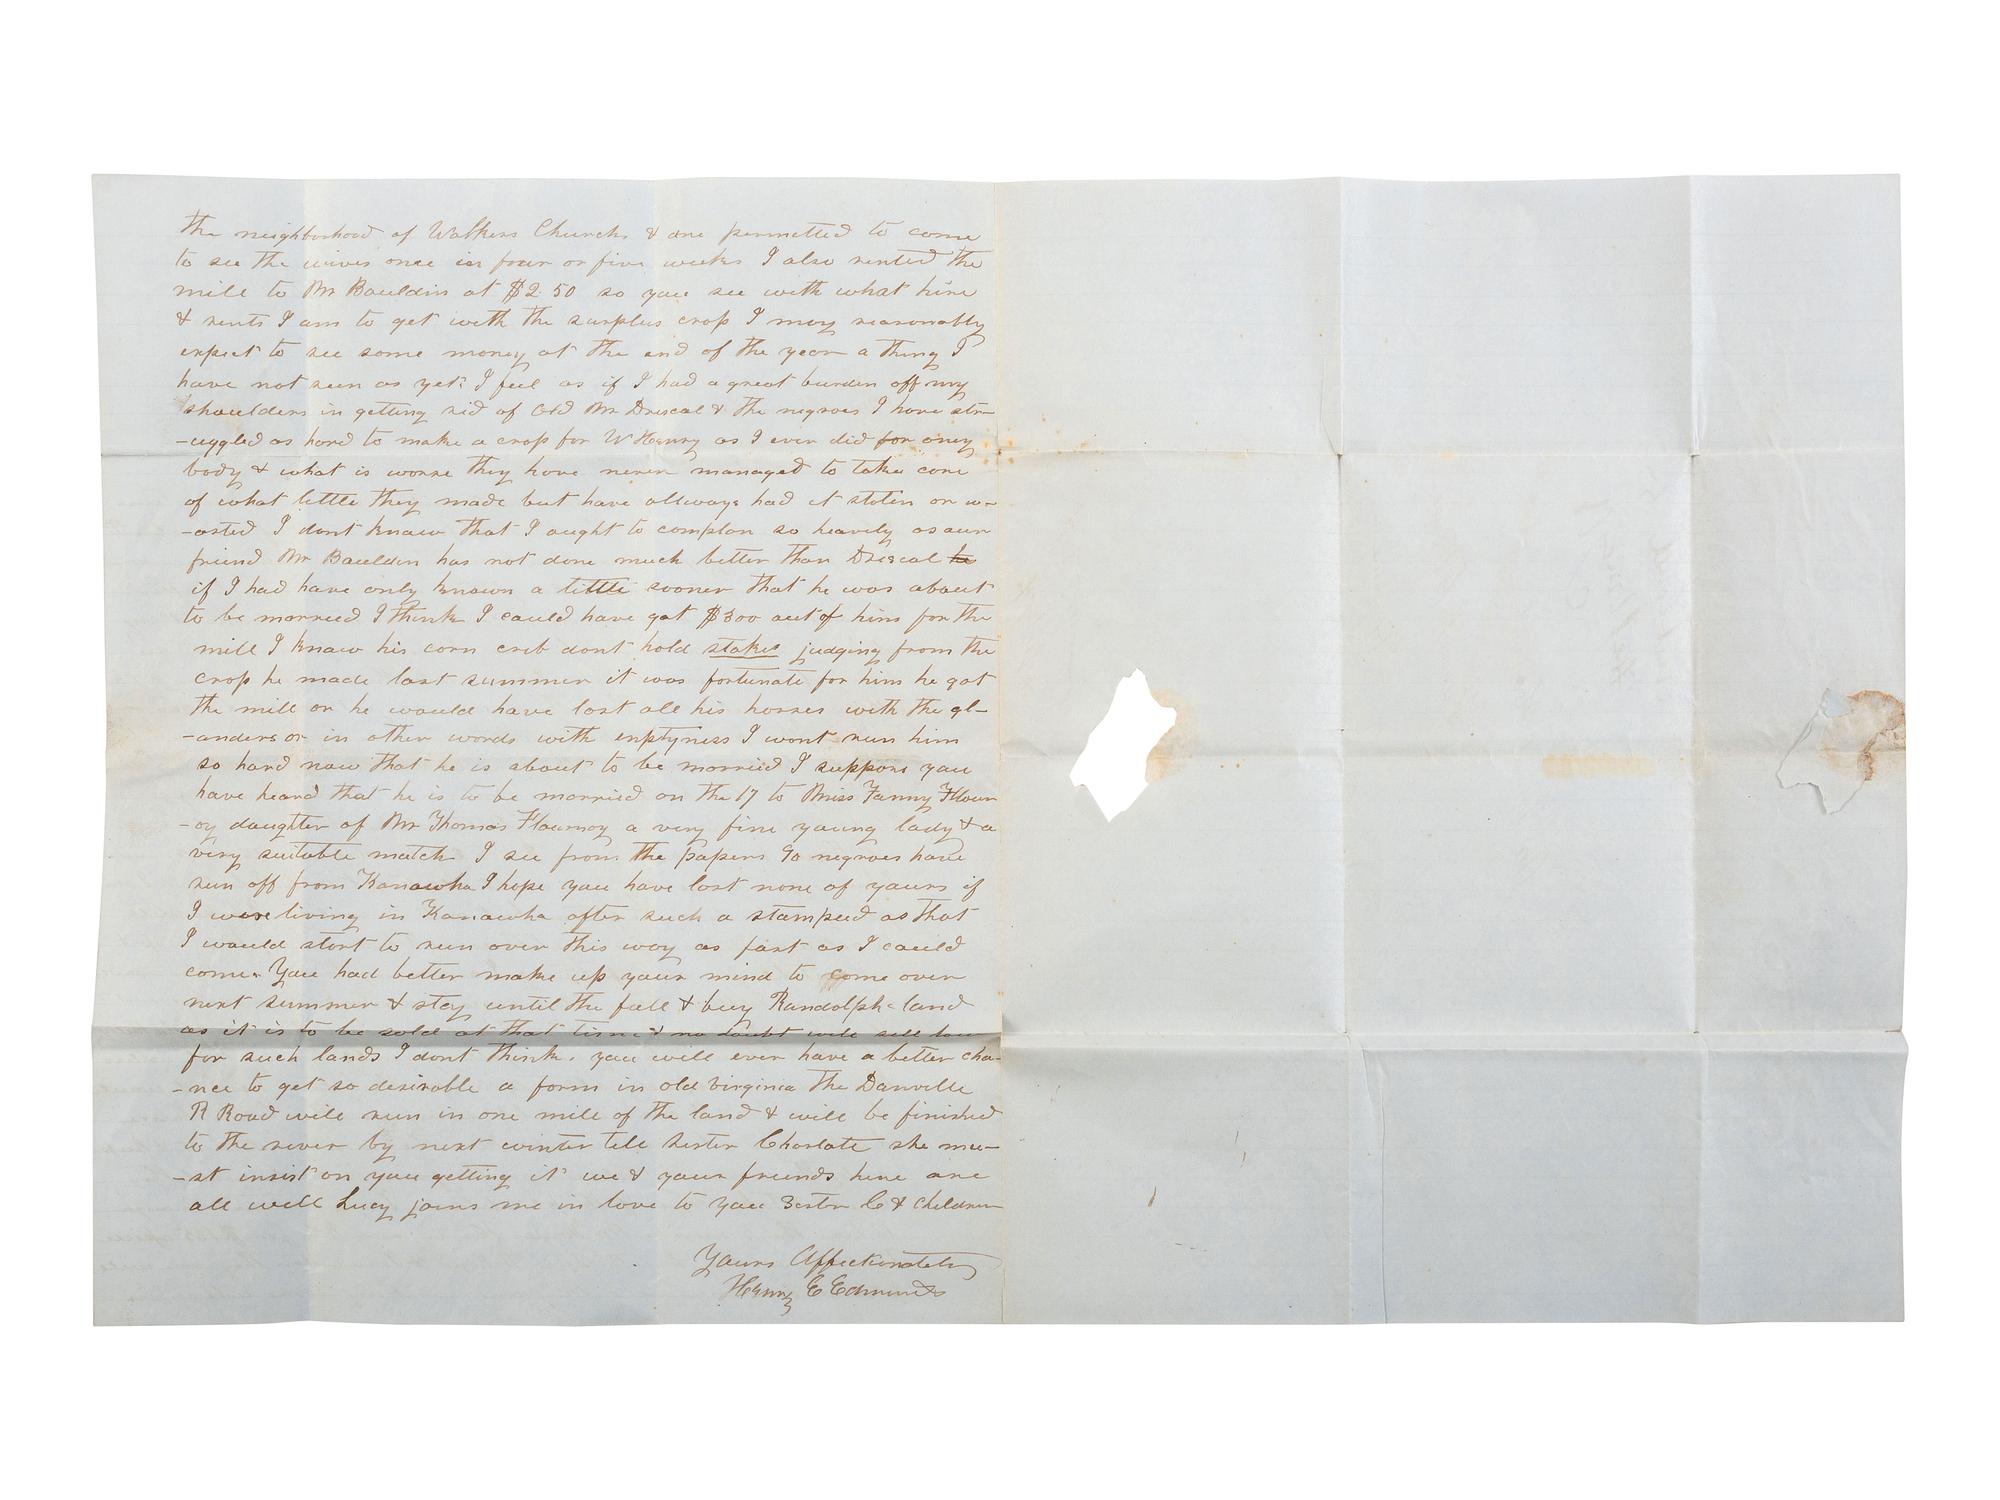 the neighborhood of Walkers Church & are permitted to come
to see the wives once in four or five weeks I also rented the
mill to Mr Bauldin at $250 so you see with what hire
& rents I am to get with the surplus crop I may reasonably
expect to see some money at the end of the year a thing I
have not seen as yet. I feel as if I had a great burden off my
shoulders in getting rid of Old Mr Driscal & the negroes I have str-
-uggled as hard to make a crop for W Henry as I ever did for any
body & what is worse they have never managed to take care
of what little they made but have allways had it stolen or w-
-asted I dont know that I aught to complan so heavily as our
friend Mr Bauldin has not done much better than Driscal
if I had have only known a little sooner that he was about
to be married I think I could have got $300 out of him for the
mill I know his corn crib dont hold stakes judging from the
crop he made last summer it was fortunate for him he got
the mill or he would have lost all his horses with the gl-
-anders or in other words with enptyness I wont run him
so hard now that he is about to be married I suppose you
have heard that he is to be married on the 17 to Miss Fanny Flourn
-oy daughter of Mr Thomas Flournoy a very fine young lady & a
very suitable match I see from the papers 90 negroes have
run off from Kanawha I hope you have lost none of yours if
I were living in Kanawha after such a stampeed as that
I would start to run over this way as fast as I could
come. You had better make up your mind to come over
next summer & stay until the fall & buy Randolph land
as it is to be sold at that time & no doubt will sell low
for such lands I dont think you will ever have a better cha-
-nce to get so desirable a farm in old virginia The Danville
R Road will run in one mile of the land & will be finished
to the river by next winter tell sister Charlote she mu-
-st insist on you getting it we & your friends here are
all well Lucy joins me in love to you sister C & children
Yours Affectionately
Henry E Edmunds